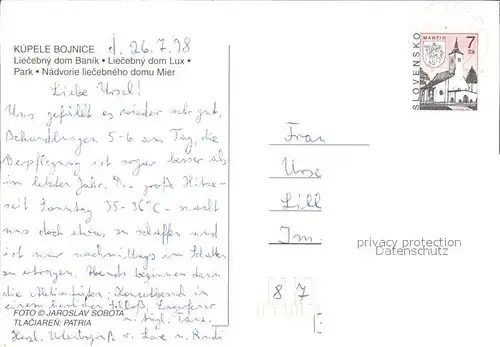 KÚPELE BOJNICE d. 26.7.98
Liečebný dom Baník • Liečebný dom Lux •
Park • Nádvorie liečebného domu Mier
Liebe Ursel!
Uns gefällt es wieder sehr gut,
Behandlungen 5-6 am Tag, die
Verpflegung ist sogar besser als
im letzten Jahr. Die große Hitze
seit Sonntag 35-36°C - macht
uns doch etwas zu schaffen und
ist nur nachmittags im Schatten
zu ertragen. Abends beginnen dann
die Aktivitäten: Konzertbesuch in
einem
FOTO © JAROSLAV SOBOTA
TLAČIAREŇ: PATRIA
Herzl. Urlaubsgruß v. und
SLOVENSKO
MARTIN
7
SK
Frau
Urs
Lill
Im
privacy protection
Datenschutz
8 7